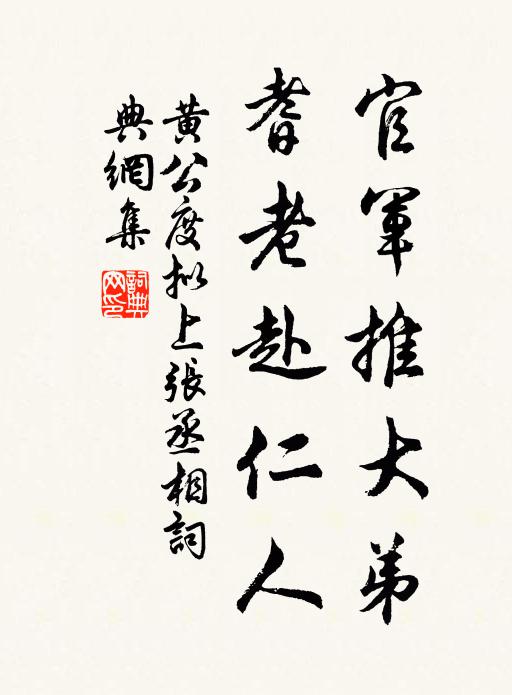 官軍推大弟
耆老赴仁人
黄公度拟上張丞相詞
典網集
詞典
网印